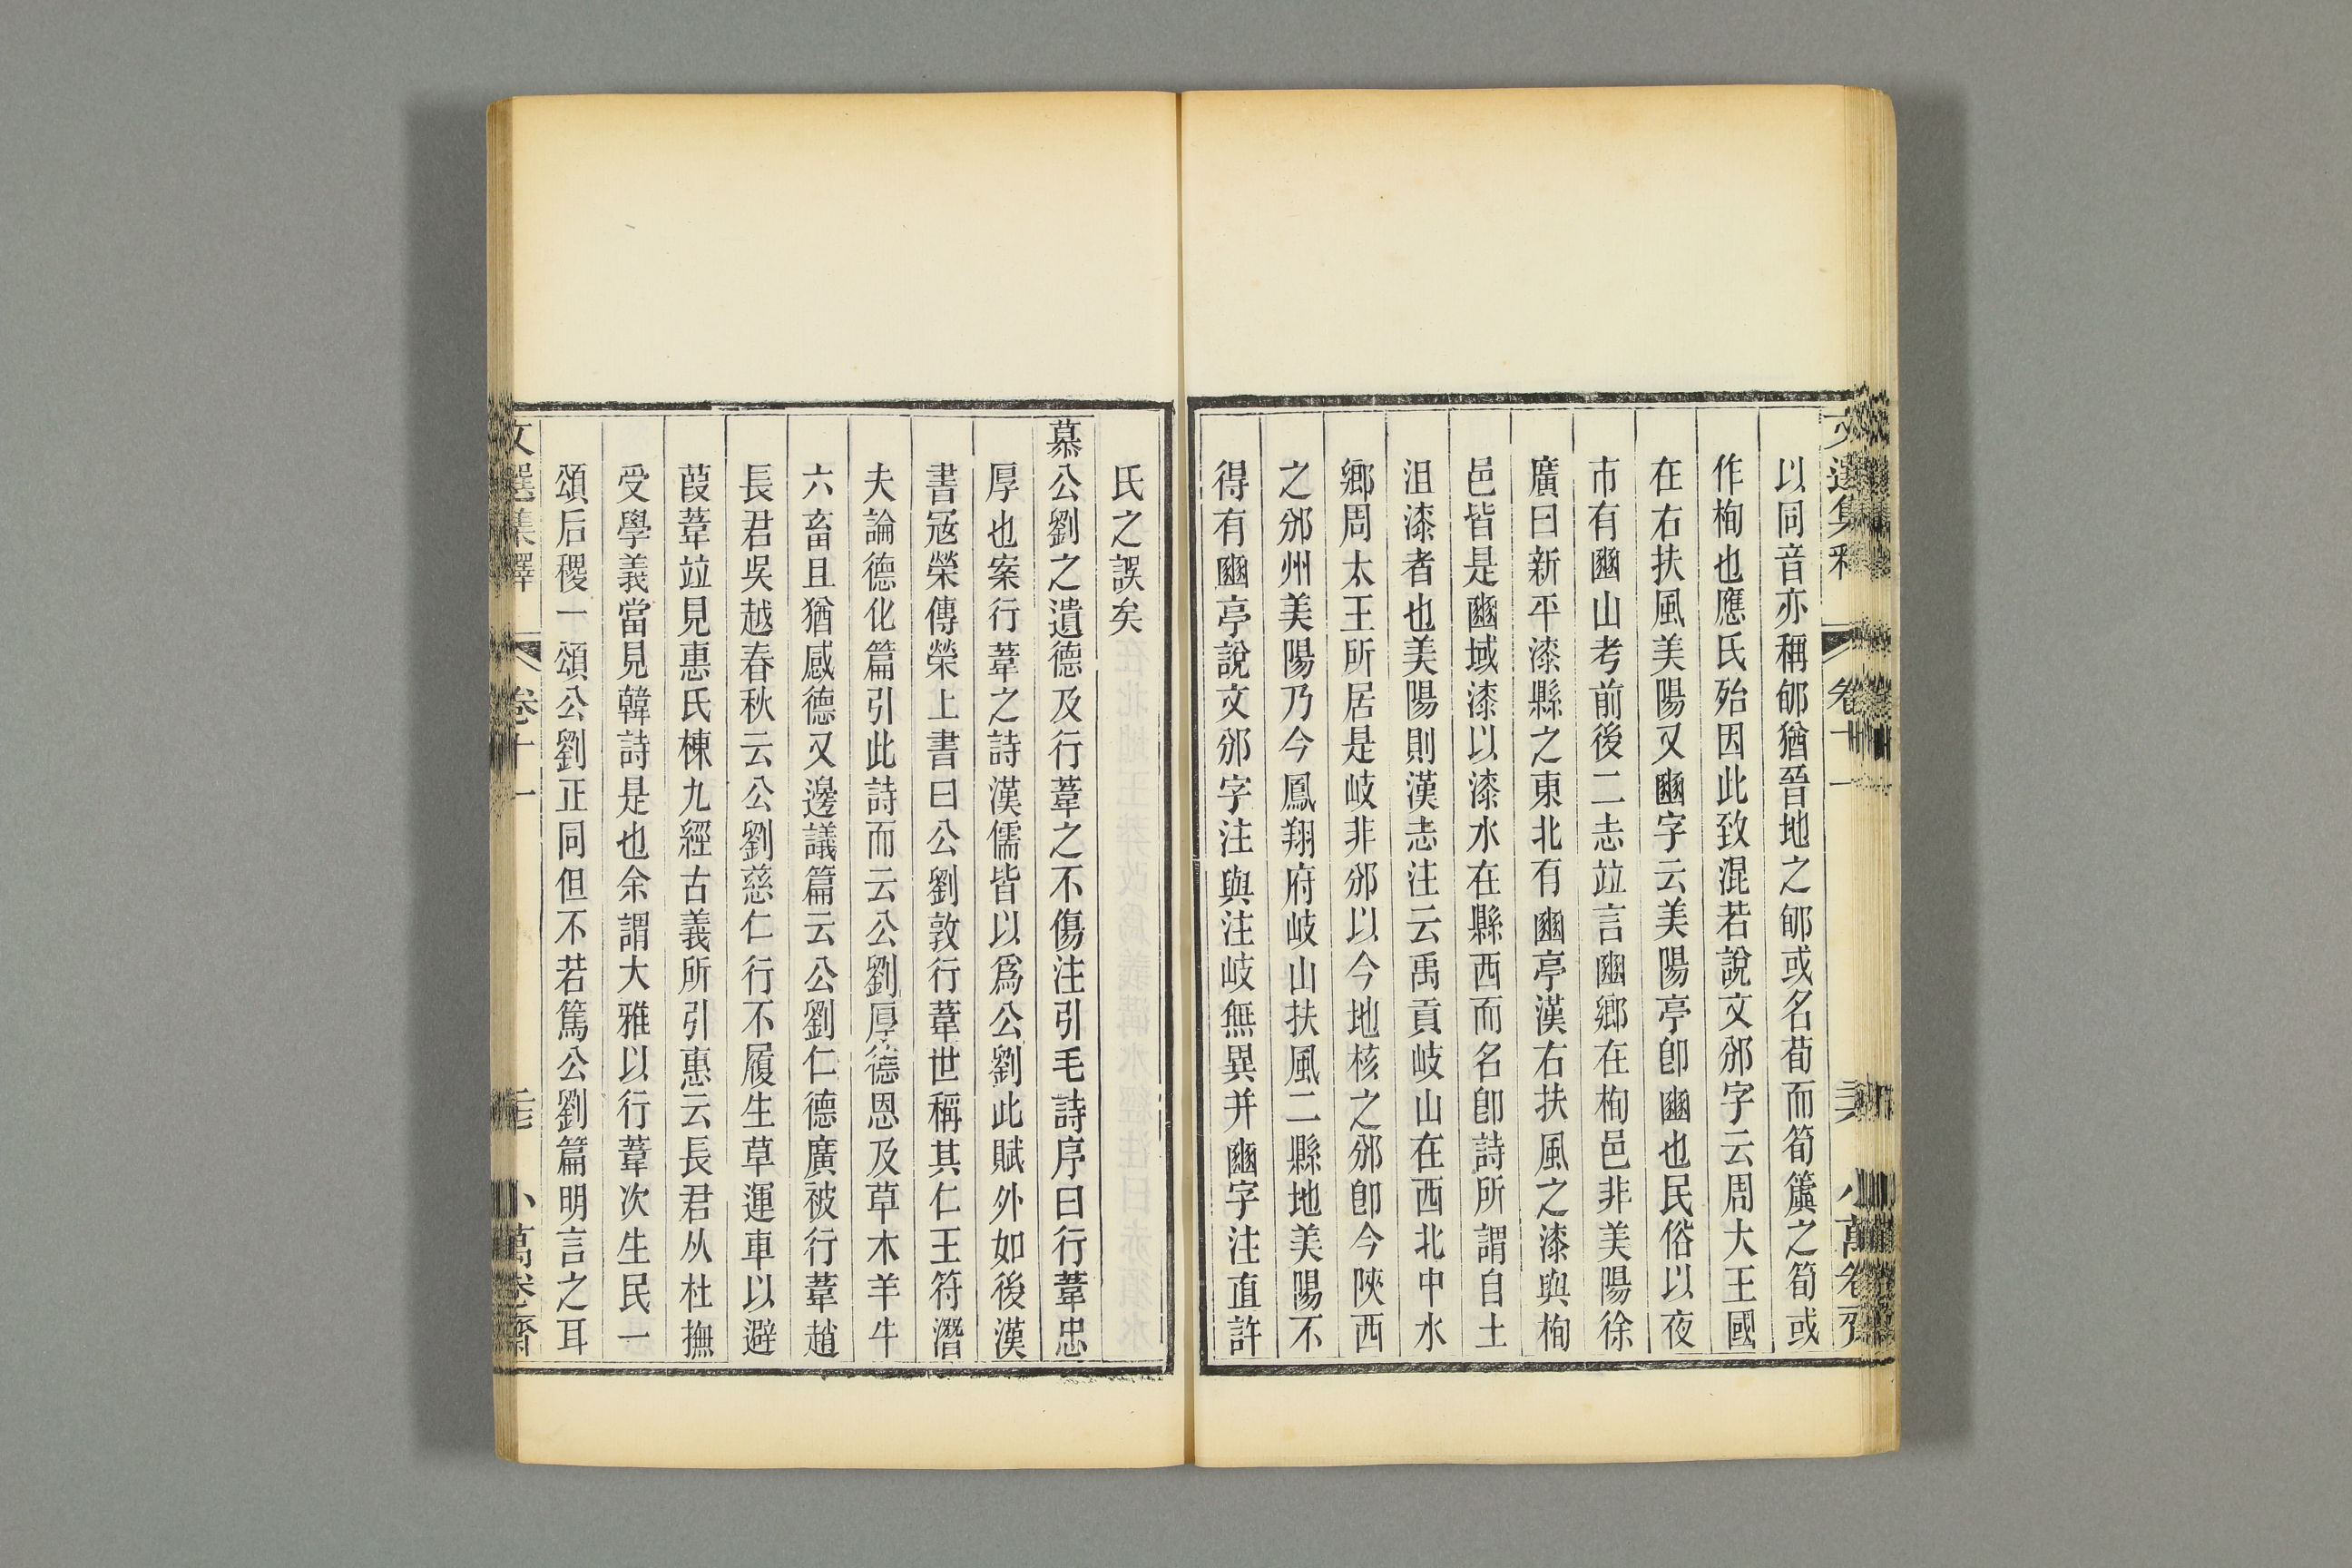 以同音亦稱郇猶晉地之郇或名荀而筍簴之筍或
作栒也應氏殆因此致混若說文邠字云周大王國
在右扶風美陽又豳字云美陽亭卽豳也民俗以夜
市有豳山考前後二志竝言豳鄉在栒邑非美陽徐
廣曰新平漆縣之東北有豳亭漢右扶風之漆與栒
邑皆是豳域漆以漆水在縣西而名卽詩所謂自土
沮漆者也美陽則漢志注云禹貢岐山在西北中水
鄉周太王所居是岐非邠以今地核之邠卽今陝西
之邠州美陽乃今鳳翔府岐山扶風二縣地美陽不
得有豳亭說文邠字注與注岐無異并豳字注直許
氏之誤矣
慕公劉之遺德及行葦之不傷注引毛詩序曰行葦忠
厚也案行葦之詩漢儒皆以爲公劉此賦外如後漢
書寇榮傳榮上書曰公劉敦行葦世稱其仁王符潛
夫論德化篇引此詩而云公劉厚德恩及草木羊牛
六畜且猶感德又邊議篇云公劉仁德廣被行葦趙
長君吳越春秋云公劉慈仁行不履生草運車以避
葭葦竝見惠氏棟九經古義所引惠云長君从杜撫
受學義當見韓詩是也余謂大雅以行葦次生民一
頌后稷一頌公劉正同但不若篤公劉篇明言之耳
文選集釋 卷十一 小萬卷齋